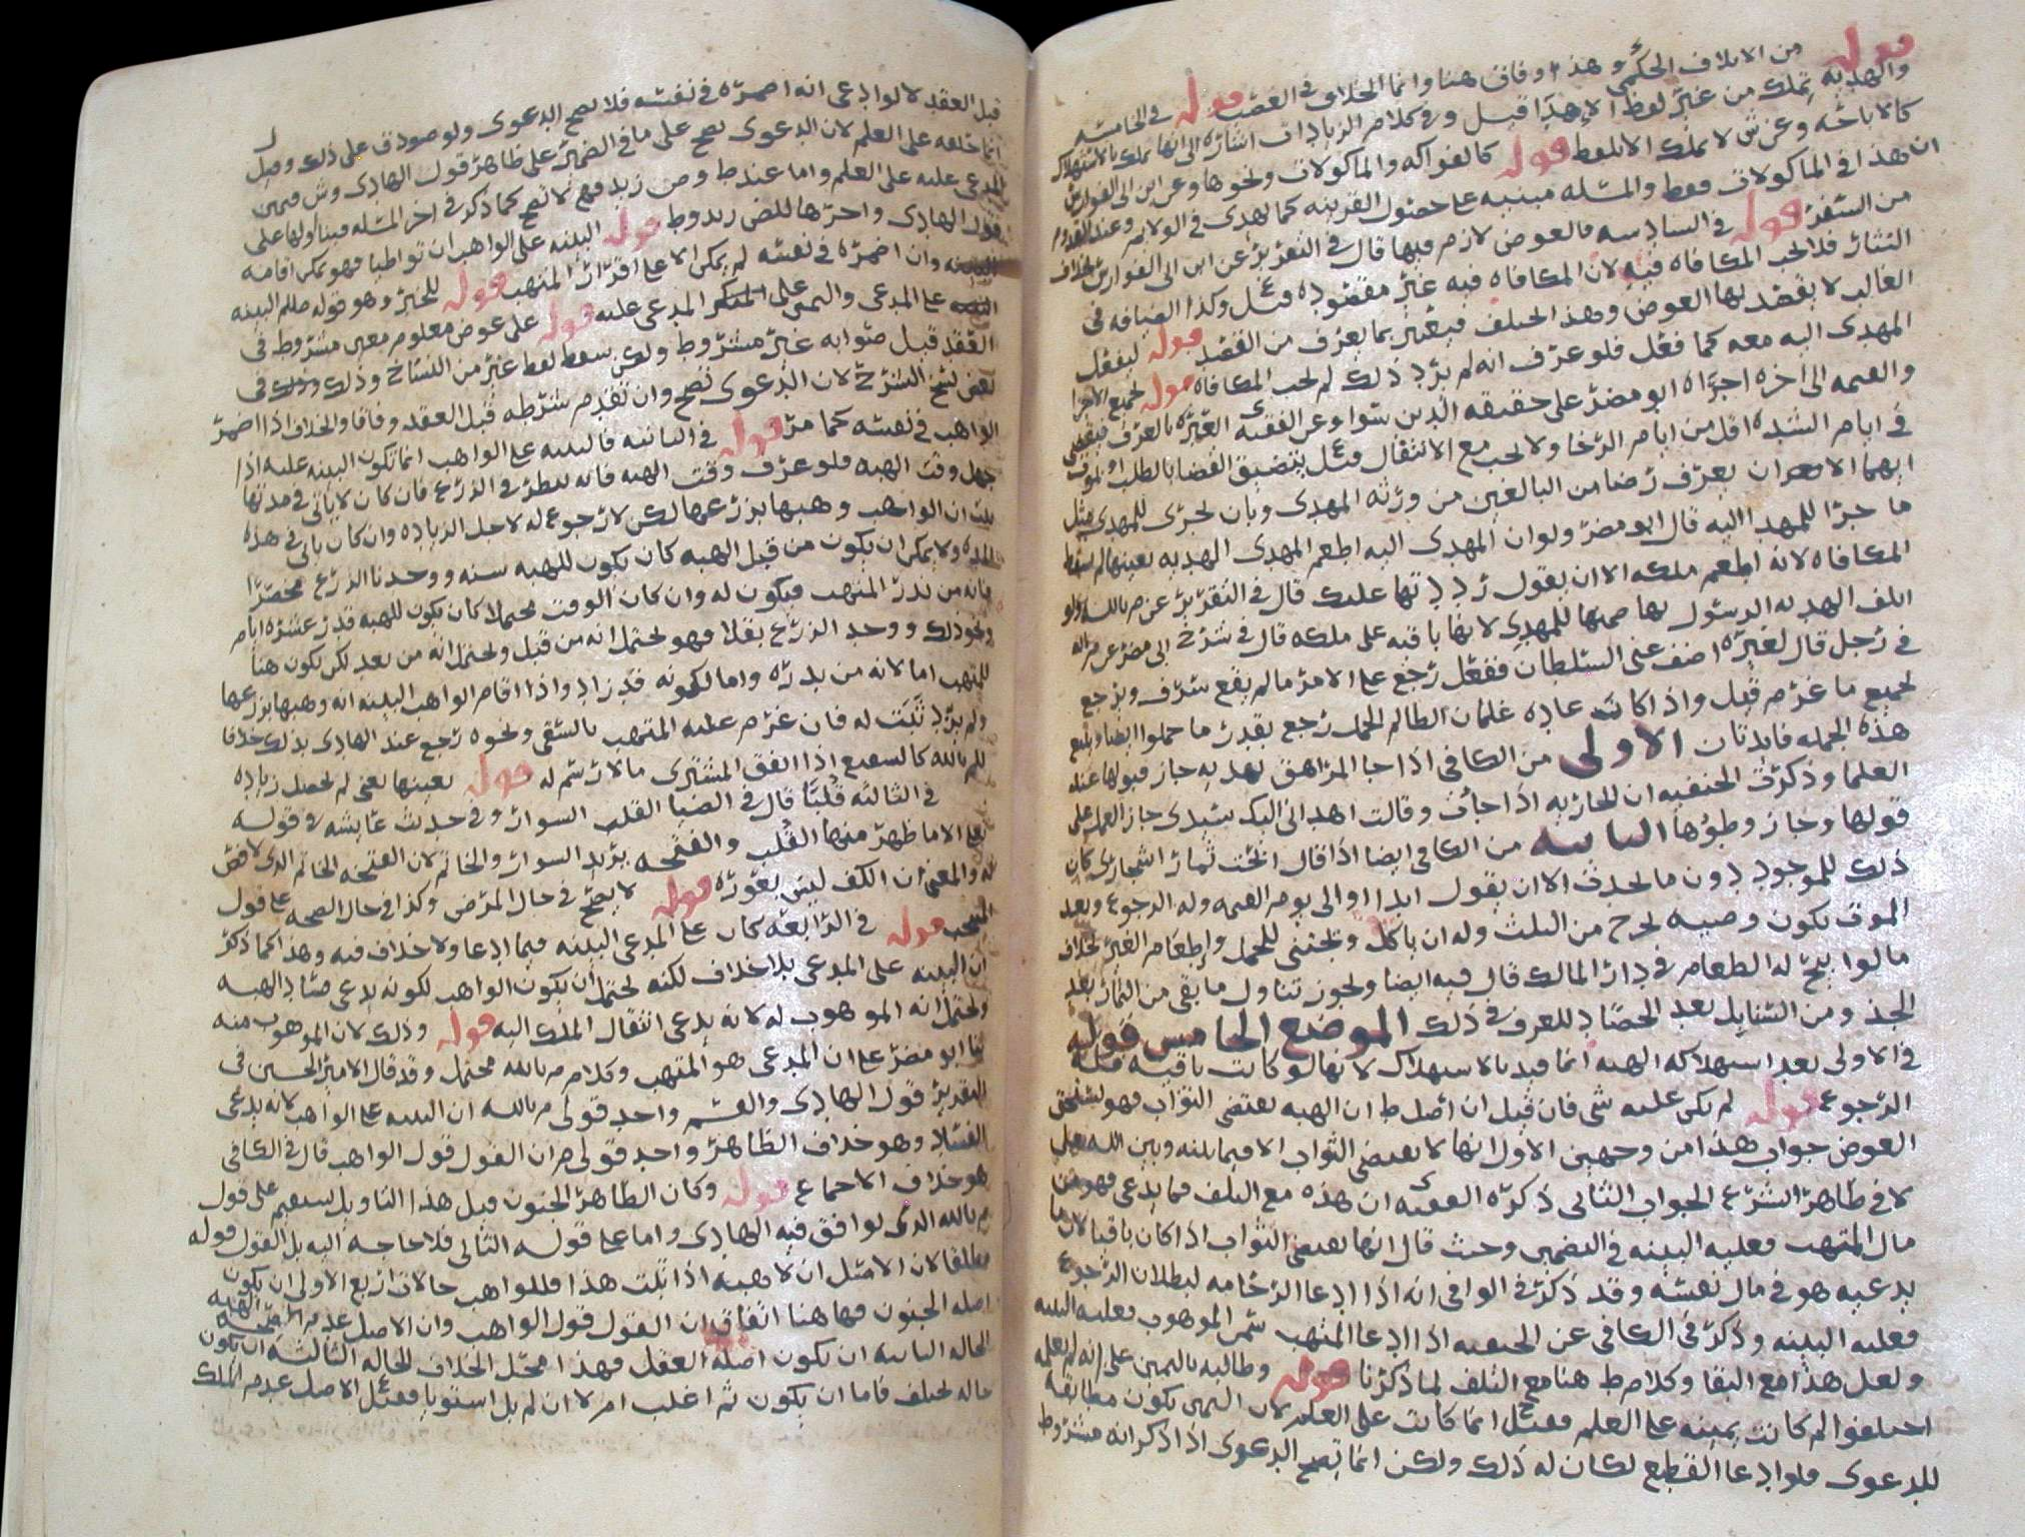 قوله من الاتلاف الحكمي وهذا وفاق هنا وانما الخلاف في الغصب قوله في الخامسه
والهديه تملك من غير لفظ الا هذا قيل وفي كلام الزيادات اشاره الى انها تملك بالاستهلاك
كالاباحه وعن ش لا تملك الا بلفظ قوله كالفواكه والماكولات ونحوها وعن ابن ابي الفوارس
ان هذا في الماكولات فقط والمسله مبنيه على حصول القرينه كما يهدى في الولايم وعند القدوم
من السفر قوله في السادسه فالعوض لازم فيها قال في التقرير عن ابن ابي الفوارس بخلاف
النثار فلا تجب المكافاه فيه لان المكافاه فيه غير مقصوده وكذا الضيافه في
الغالب لا يقصد بها العوض وهذا يختلف فيعتبر بما يعرف من القصد قوله ليفعل
المهدى اليه معه كما فعل فلو عرف انه لم يرد ذلك لم تجب المكافاه قوله
والقيمه الى اخره اجراه ابو مضر على حقيقه الدين سواء وعن الفقيه ى العبره بالعرف
في ايام الشده اقل من ايام الرخا ولا تجب مع الانتقال يتضيق القضا بالطلب او بموت
ايهما الا من ان يعرف رضا من البالغين من ورثه المهدى وبان يجرى للمهدى مثل
ما جرا للمهدا اليه قال ابو مضر ولو ان المهدى اليه اطعم المهدى الهديه بعينها لم تسقط
المكافاه لانه اطعم ملكه الا ان يقول رددتها عليك قال في التقرير عن م بالله ولو
اتلف الهديه الرسول بها ضمنها للمهدي لانها باقيه على ملكه قال في شرح ابي مضر عن م بالله
في رجل قال لغيره اضف عني السلطان ففعل رجع على الامر ما لم يقع سرف ويرجع
بجميع ما غرم قيل واذا كانت عاده غلمان الظالم الحمل رجع بقدر ما حملوا ايضا
هذه الجمله فايدتان الاولى من الكافي اذا جا المراهق بهديه جاز قبولها عند
العلما وذكرت الحنفيه ان الجاريه اذا جأت وقالت اهداني اليك سيدى جاز العمل على
قولها وجاز وطؤها الثانيه من الكافي ايضا اذا قال ابحت ثمار اشجارى كان
ذلك للموجود دون ما يحدث الا ان يقول ابدا او الى يوم القيمه وله الرجوع وبعد
الموت يكون وصيه تخرج من الثلث وله ان ياكل ويجتني للحمل وإطعام الغير بخلاف
ما لو ابيح له الطعام في دار المالك قال فيه ايضا ويجوز تناول ما بقى من الثمار بعد
الجذ ومن السنابل بعد الحصاد للعرف في ذلك الموضع الخامس قوله
في الاولى بعد استهلاكه الهبه انما قيد بالاستهلاك لانها لو كانت باقيه فله
الرجوع قوله لم يكن عليه شى فان قيل ان اصل ط ان الهبه تقتضي الثواب فهو يستحق
العوض جواب هذا من وجهين الاول انها لا تقتضى الثواب الا فيما بينه وبين الله تعالى
لا في ظاهر الشرع الجواب الثاني ذكره الفقيه ى ان هذه مع التلف فما يدعى فهو من
مال المتهب فعليه البينه في التضمين وحيث قال انها تقتضي الثواب اذا كان باقيا لان ما
يدعيه هو في مال نفسه وقد ذكر في الوافي انه اذا ادعا الرخامه لبطلان الرجوع
فعليه البينه وذكر في الكافي عن الحنفيه اذا ادعا المتهب ثمن الموهوب فعليه البينه
ولعل هذا مع البقا وكلام ط هنا مع التلف لما ذكرنا قوله وطالبه باليمين على انه لم يعلمه
اختلفوا لم كانت يمينه على العلم فقيل انما كانت على العلم لان اليمين يكون مطابقه
للدعوى فلو ادعا القطع لكان له ذلك ولكن انما تصح الدعوى اذا ذكر انه مشروط
قبل العقد لا لو ادعى انه اضمره في نفسه فلا تصح الدعوى ولو صودق على ذلك وقيل
انما حلفه على العلم لان الدعوى تصح على ما في الضمير على ظاهر قول الهادى وش فيمين
المدعى عليه على العلم واما عند ط وص زيد فهي لا تصح كما ذكر في اخر المسله فبنا اولها على
قول الهادى واخرها للص زيد وط قوله البينه على الواهب ان تواطيا فهو يمكن اقامه
البينه وان اضمره في نفسه لم يمكن الا على اقرار المتهب قوله للخبر وهو قوله صلم البينه
على المدعى واليمين على المنكر المدعى عليه قوله على عوض معلوم معين مشروط في
العقد قيل صوابه غير مشروط ولكن سقط لفظ غير من النساخ وذلك في
بعض نسخ الشرح لان الدعوى تصح وان تقدم شرطه قبل العقد وفاقا والخلاف اذا اضمر
الواهب في نفسه كما مر قوله في الثانيه فالبينه على الواهب انما تكون البينه عليه اذا
جهل وقت الهبه فلو عرف وقت الهبه فانه ينظر في الزرع فان كان لا ياتي في مدتها
ان الواهب وهبها بزرعها لكن لا رجوع له لاجل الزياده وان كان ياتي في هذه
المده ولا يمكن ان يكون من قبل الهبه كان يكون للهبه سنه ووجدنا الزرع مخضرا
فانه من بذر المتهب فيكون له وان كان الوقت محتملا كان يكون للهبه قدر عشره ايام
ونحو ذلك ووجد الزرع بقلا فهو يحتمل انه من قبل ويحتمل انه من بعد لكن يكون هنا
للمتهب اما لانه من بذره واما لكونه قد زاد واذا اقام الواهب البينه انه وهبها بزرعها
ولم يزد ثبت له فان غرم عليه المتهب بالسقى ونحوه رجع عند الهادى بذلك خلافا
للم بالله كالشفيع اذا انفق المشترى ما لا رسم له قوله بعينها يعني لم يحصل زياده
في الثالثه قلبا قال في الضيا القلب السوار وفي حديث عايشه في قوله
تعلى الا ما ظهر منها القلب والفتخه يريد السوار والخاتم لان الفتخه الخاتم الذى لا فص
له والمعنى ان الكف ليس بعوره قوله لا يصح في حال المرض وكذا في حال الصحه على قول
المنتخب قوله في الرابعه كان على المدعى البينه فيما ادعا ولا خلاف فيه وهذا كما ذكر
ان البينه على المدعى بلا خلاف لكنه يحتمل ان يكون الواهب لكونه يدعى فساد الهبه
ويحتمل انه الموهوب له لانه يدعى انتقال الملك اليه قوله وذلك لان الموهوب منه
بنا ابو مضر على ان المدعى هو المتهب وكلام م بالله محتمل وقد قال الامير الحسين في
التقرير قول الهادى والقسم واحد قولى م بالله ان البينه على الواهب لانه يدعى
الفساد وهو خلاف الظاهر واحد قولى م ان القول قول الواهب قال في الكافي
هو خلاف الاجماع قوله وكان الظاهر الجنون قيل هذا التاويل يستقيم على قول
م بالله الذى يوافق فيه الهادى واما على قوله الثاني فلا حاجه اليه بل القول قوله
مطلقا لان الاصل ان لا هبه اذا ثبت هذا فللواهب حالات اربع الاولى ان يكون
اصله الجنون فها هنا اتفاق ان القول قول الواهب وان الاصل عدم صحه الهبه
الحاله الثانيه ان يكون اصله العقل فهذا محل الخلاف الحاله الثالثه ان يكون
حاله تختلف فاما ان يكون ثم اغلب ام لا ان لم بل استويا فقيل الاصل عدم الملك